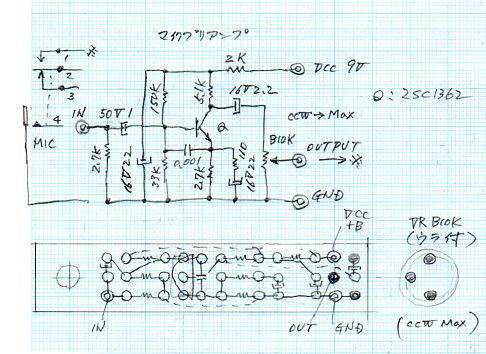 マイクプリアンプ
1
2
3
4
MIC
IN
50V 1
2.7K
16V22
150K
33K
0.001
5.1K
2.7K
Q
2K
16V2.2
110
16V22
B10K
CCW→Max
DCC 9V
OUTPUT
GND
Q:2SC1362
IN
OUT
GND
DCC
+B
VR B10K
(ウラ付)
(CCW Max)